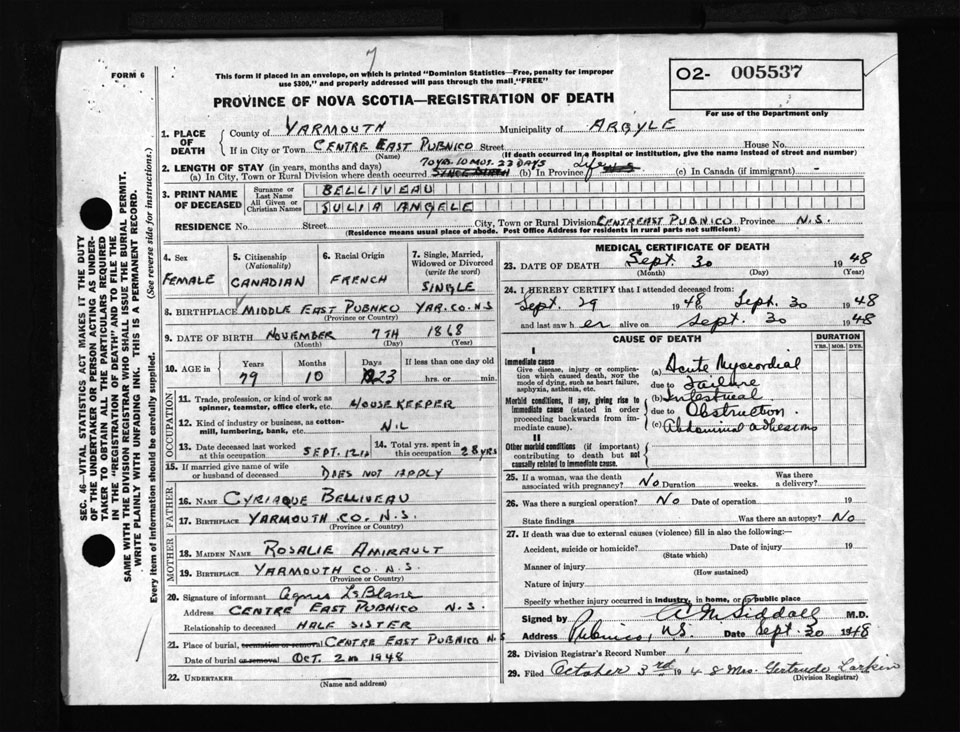 7
FORM 6
This form if placed in an envelope, on which is printed "Dominion Statistics—Free, penalty for improper
use $300," and properly addressed will pass through the mail "FREE"
O2- 005537
For use of the Department only
PROVINCE OF NOVA SCOTIA—REGISTRATION OF DEATH
1. PLACE OF DEATH
County of YARMOUTH Municipality of ARGYLE
If in City or Town CENTRE EAST PUBNICO Street House No.
(Name) (If death occurred in a Hospital or Institution, give the name instead of street and number)
2. LENGTH OF STAY (in years, months and days) 79 YRS. 10 MOS. 23 DAYS
(a) In City, Town or Rural Division where death occurred SINCE BIRTH (b) In Province Life (c) In Canada (if immigrant) -
3. PRINT NAME OF DECEASED
Surname or Last Name BELLIVEAU
All Given or Christian Names JULIA ANGELE
RESIDENCE No. Street City, Town or Rural Division CENTRE EAST PUBNICO Province N.S.
(Residence means usual place of abode. Post Office Address for residents in rural parts not sufficient)
SEC. 46—VITAL STATISTICS ACT MAKES IT THE DUTY
OF THE UNDERTAKER OR PERSON ACTING AS UNDER-
TAKER TO OBTAIN ALL THE PARTICULARS REQUIRED
IN THE "REGISTRATION OF DEATH" AND TO FILE THE
SAME WITH THE DIVISION REGISTRAR WHO SHALL ISSUE THE BURIAL PERMIT.
WRITE PLAINLY WITH UNFADING INK. THIS IS A PERMANENT RECORD.
Every item of information should be carefully supplied. (See reverse side for instructions.)
4. Sex FEMALE
5. Citizenship (Nationality) CANADIAN
6. Racial Origin FRENCH
7. Single, Married, Widowed or Divorced (write the word) SINGLE
8. BIRTHPLACE MIDDLE EAST PUBNICO YAR. CO. N.S
(Province or Country)
9. DATE OF BIRTH NOVEMBER 7TH 1868
(Month) (Day) (Year)
10. AGE IN Years 79 Months 10 Days 23 If less than one day old hrs. or min.
OCCUPATION
11. Trade, profession, or kind of work as
spinner, teamster, office clerk, etc. HOUSEKEEPER
12. Kind of industry or business, as cotton-
mill, lumbering, bank, etc. NIL
13. Date deceased last worked
at this occupation SEPT. 12th
14. Total yrs. spent in
this occupation 28 YRS
15. If married give name of wife
or husband of deceased DOES NOT APPLY
FATHER
16. NAME CYRIAQUE BELLIVEAU
17. BIRTHPLACE YARMOUTH CO. N.S.
(Province or Country)
MOTHER
18. MAIDEN NAME ROSALIE AMIRAULT
19. BIRTHPLACE YARMOUTH CO. N.S
(Province or Country)
20. Signature of informant Agnes LeBlanc
Address CENTRE EAST PUBNICO N.S.
Relationship to deceased HALF SISTER
21. Place of burial, cremation or removal CENTRE EAST PUBNICO N.S
Date of burial or removal OCT. 2nd 1948
22. UNDERTAKER
(Name and address)
MEDICAL CERTIFICATE OF DEATH
23. DATE OF DEATH Sept. 30 1948
(Month) (Day) (Year)
24. I HEREBY CERTIFY that I attended deceased from:
Sept. 29 1948 to Sept. 30 1948
and last saw her alive on Sept. 30 1948
CAUSE OF DEATH
DURATION
YRS. MOS. DYS.
I
Immediate cause
Give disease, injury or complica-
tion which caused death, not the
mode of dying, such as heart failure,
asphyxia, asthenia, etc.
Morbid conditions, if any, giving rise to
immediate cause (stated in order
proceeding backwards from im-
mediate cause).
II
Other morbid conditions (if important)
contributing to death but not
causally related to immediate cause.
(a) Acute Myocardial
due to Failure
(b) Intestinal
due to Obstruction.
(c) Abdominal adhesions
25. If a woman, was the death
associated with pregnancy? No Duration weeks. Was there a delivery?
26. Was there a surgical operation? No Date of operation 19
State findings Was there an autopsy? No
27. If death was due to external causes (violence) fill in also the following:—
Accident, suicide or homicide? Date of injury 19
(State which)
Manner of injury
(How sustained)
Nature of injury
Specify whether injury occurred in industry, in home, or in public place
Signed by A M Siddall M.D.
Address Pubnico, N.S. Date Sept. 30 1948
28. Division Registrar's Record Number
29. Filed October 3rd 1948 Mrs. Gertrude Larkin
(Division Registrar)